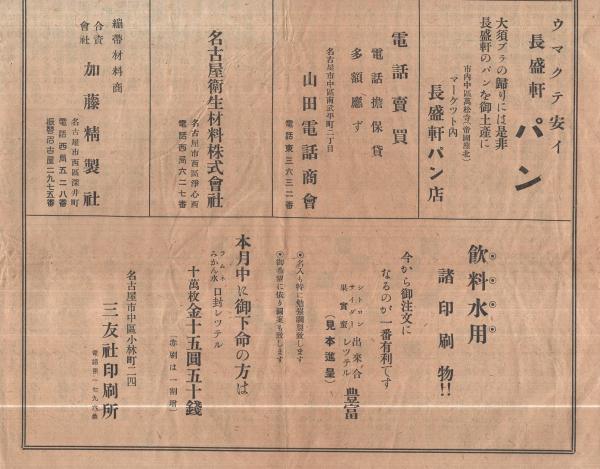 ウマクテ安イ
長盛軒パン
大須ブラの歸りには是非
長盛軒のパンを御土産に
市内中區萬松寺(帝國座北)
マーケット内
長盛軒パン店
電話賣買
電話擔保貸
多額應ず
名古屋市中區南武平町二丁目
山田電話商會
電話東三六三二番
名古屋衛生材料株式會社
名古屋市西區淨心西
電話西局六二七番
繃帶材料商
合資會社 加藤精製社
名古屋市西區深井町
電話西局五二八番
振替名古屋二九七五番
飲料水用
諸印刷物!!
今から御注文に
なるのが一番有利です
シトロン
サイダー
果實蜜
出來合
レツテル
豊富
(見本進呈)
◎名入も特に勉强調製致します
◎御希望に依り圖案も致します
本月中に御下命の方は
ラムネ
みかん水
口封レツテル
十萬枚金十五圓五十錢
(赤刷は一割增)
名古屋市中區小林町二四
三友社印刷所